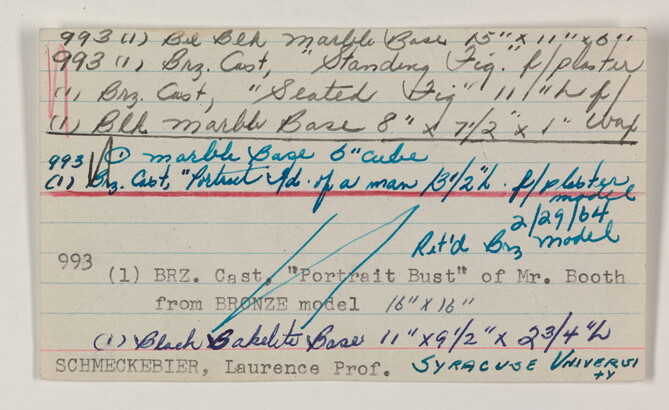 993 (1) Bel Blk Marble Base 15" x 11" x 6"
993 (1) Brz. Cast, "Standing Fig." f/plaster
(1) Brz. Cast, "Seated Fig" 11" h f/
(1) Blk Marble Base 8" x 7 1/2" x 1" wax
993 (1) marble Base 6" cube
(1) Brz. Cast, "Portrait Hd. of a man 13 1/2" h. f/plaster
model
2/29/64
Ret'd Brz model
993 (1) BRZ. Cast, "Portrait Bust" of Mr. Booth
from BRONZE model 16" x 16"
(1) Black Bakelite Base 11" x 9 1/2" x 2 3/4" h
SCHMECKEBIER, Laurence Prof. SYRACUSE UNIVERSI
TY